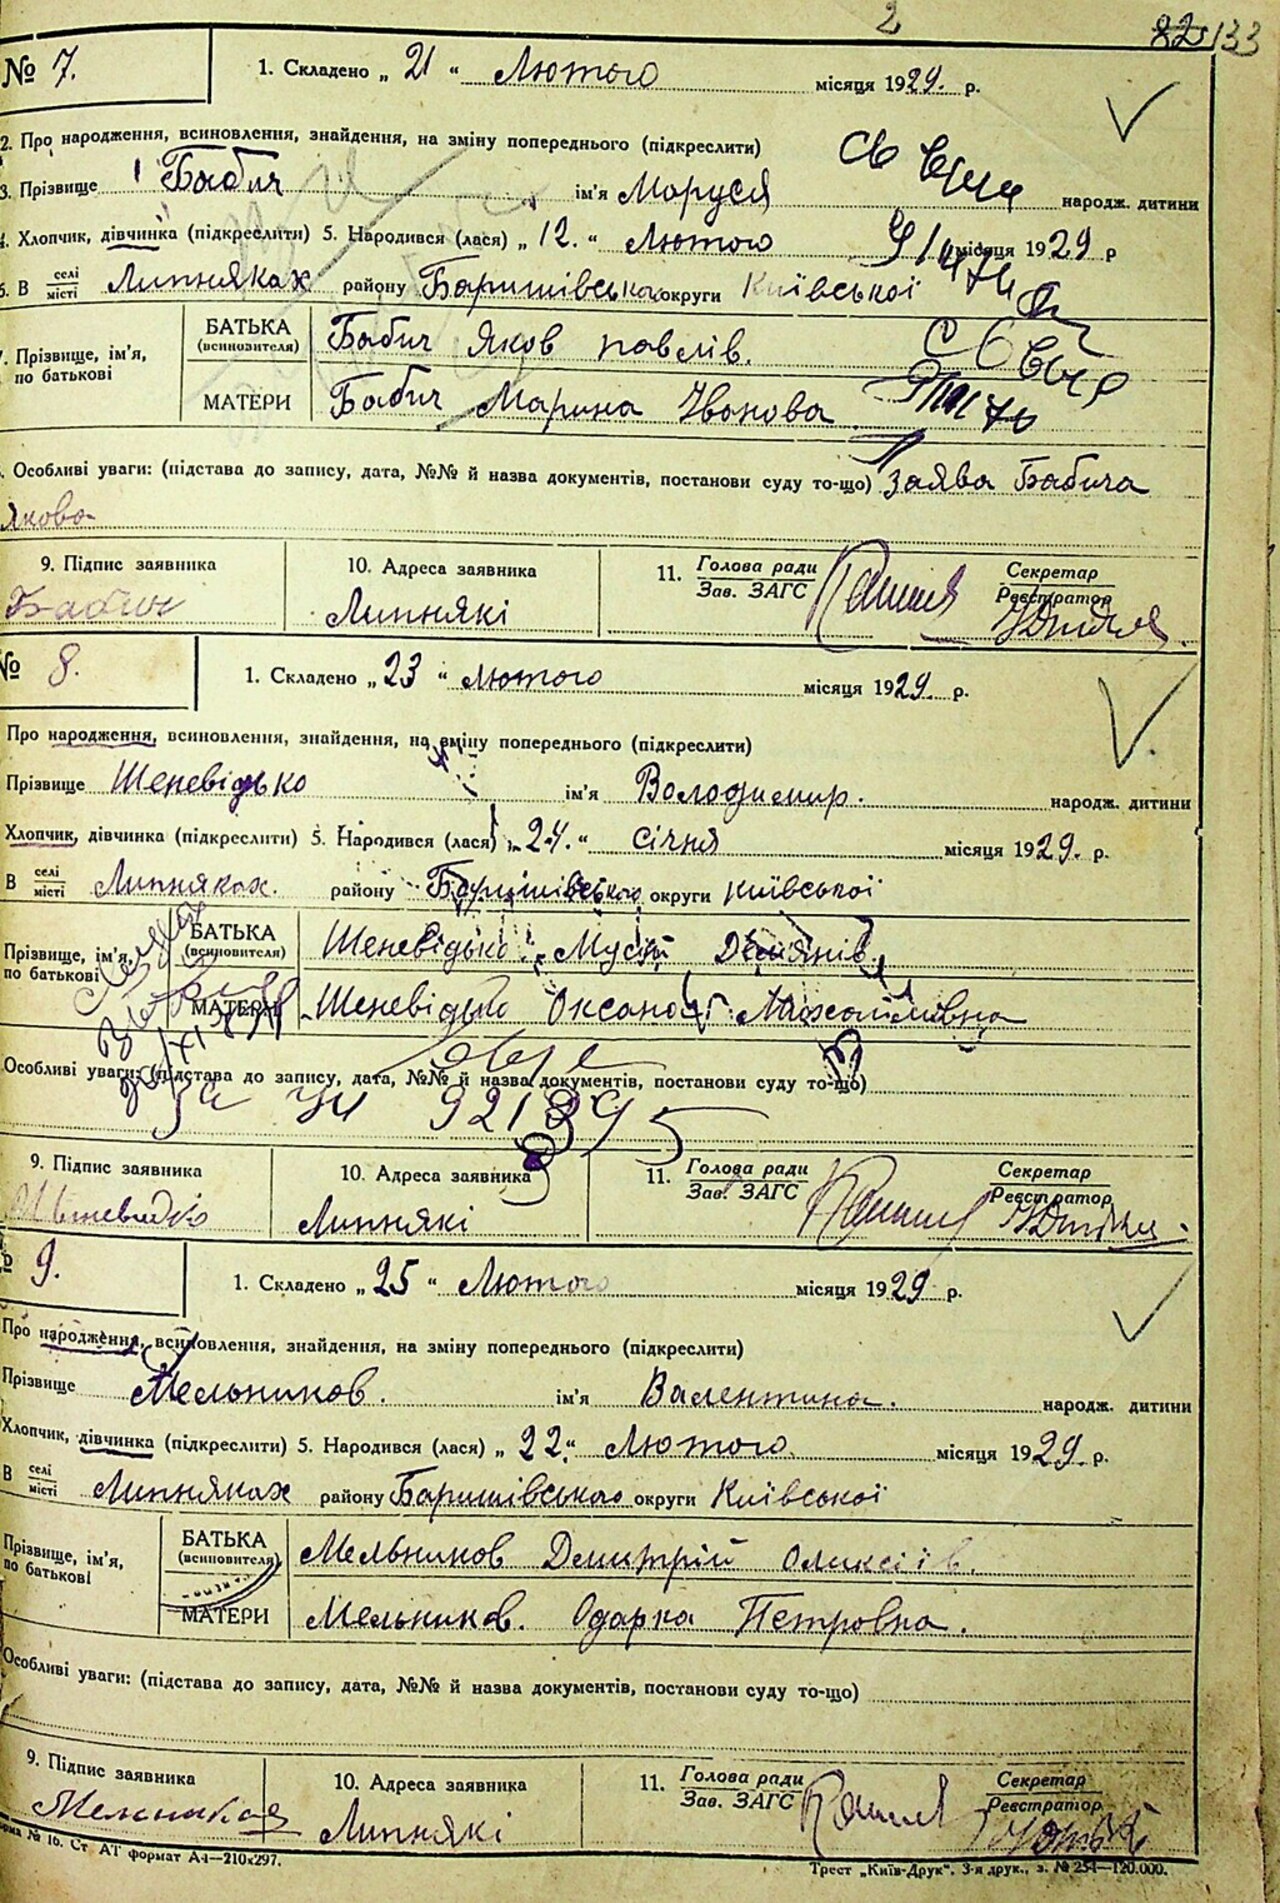 2 82 133
№ 7. 1. Складено „ 21 “ Лютого місяця 1929. р.
2. Про народження, всиновлення, знайдення, на зміну попереднього (підкреслити)
3. Прізвище Бабич ім'я Маруся народж. дитини
4. Хлопчик, дівчинка (підкреслити) 5. Народився (лася) „ 12. “ Лютого місяця 1929 р
6. В селі місті Липняках району Баришівського округи Київської
7. Прізвище, ім'я, по батькові БАТЬКА (всиновителя) Бабич Яков павлів.
МАТЕРИ Бабич Марина Іванова.
Особливі уваги: (підстава до запису, дата, №№ й назва документів, постанови суду то-що) Заява Бабича
Якова
9. Підпис заявника 10. Адреса заявника 11. Голова ради Зав. ЗАГС Секретар Реєстратор
Бабич Липнякі
№ 8. 1. Складено „ 23 “ Лютого місяця 1929. р.
Про народження, всиновлення, знайдення, на зміну попереднього (підкреслити)
Прізвище Шеневідько ім'я Володимир. народж. дитини
Хлопчик, дівчинка (підкреслити) 5. Народився (лася) „ 24. “ січня місяця 1929. р.
В селі місті Липняках. району Баришівського округи Київської
Прізвище, ім'я, по батькові БАТЬКА (всиновителя) Шеневідько Мусій Демянів.
МАТЕРИ Шеневідько Оксана Михайлівна
Особливі уваги: (підстава до запису, дата, №№ й назва документів, постанови суду то-що)
9. Підпис заявника 10. Адреса заявника 11. Голова ради Зав. ЗАГС Секретар Реєстратор
Липнякі
№ 9. 1. Складено „ 25 “ Лютого місяця 1929 р.
Про народження, всиновлення, знайдення, на зміну попереднього (підкреслити)
Прізвище Мельников. ім'я Валентина. народж. дитини
Хлопчик, дівчинка (підкреслити) 5. Народився (лася) „ 22. “ Лютого місяця 1929. р.
В селі місті Липняках району Баришівського округи Київської
Прізвище, ім'я, по батькові БАТЬКА (всиновителя) Мельников Дмитрій Олексіїв.
МАТЕРИ Мельников. Одарка Петровна.
Особливі уваги: (підстава до запису, дата, №№ й назва документів, постанови суду то-що)
9. Підпис заявника 10. Адреса заявника 11. Голова ради Зав. ЗАГС Секретар Реєстратор
Липнякі
орма № 16. Ст АТ формат А-1—210х297. Трест „Київ-Друк“. 3-я друк., з. № 254—120.000.